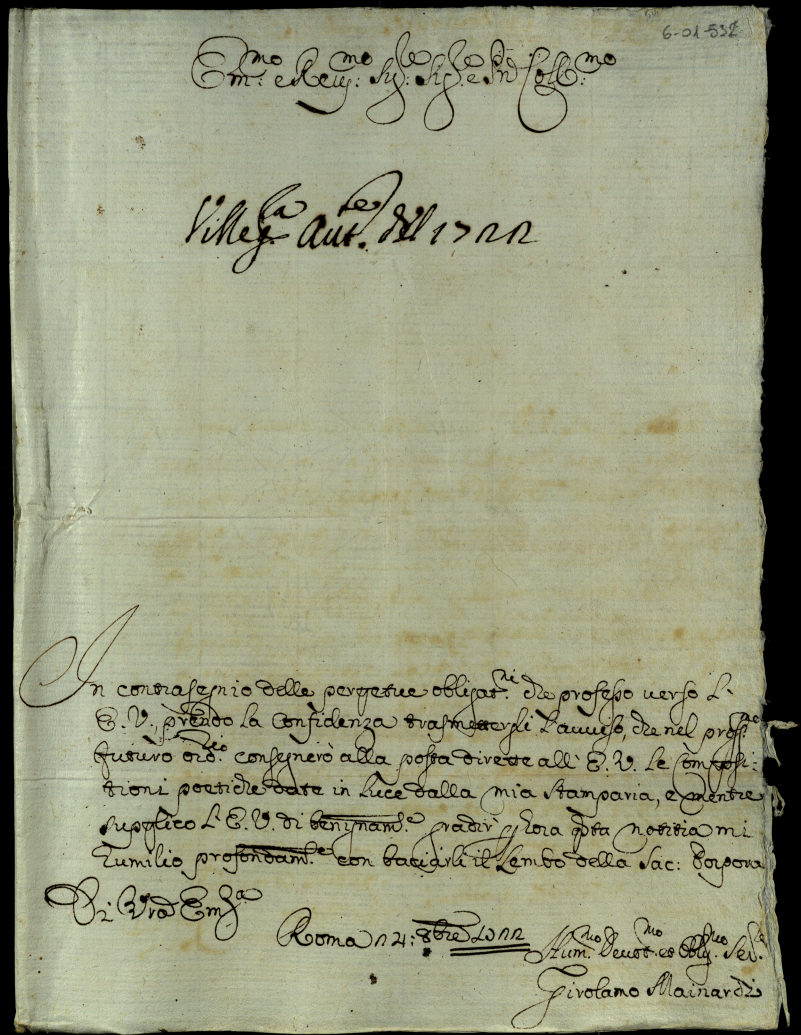 6-01-532
Em.mo e Reu.mo Sig.re Sig.re e Pñe Coll.mo
Villeg.ra Aut.le del 1722
In contrasegnio delle perpetue obligat.ni che professo uerso L'
E. V. prendo La Confidenza trasmettersli L'auuiso, che nel pross.mo
futuro ord.rio consegnerò alla posta dirette all' E. V. Le Composi:
tioni poetiche date in Luce dalla mia Stamparia, e mentre
supplico L'E. V. di benignam.te gradir p hora q̃ta notitia mi
humilio profondam.te con baciarli il Lembo della Sac: Porpora
Di Vrã Em.za
Roma 24: 8bre 1722
Hum.mo Deuot.mo et Obbg.mo Ser.re
Girolamo Mainardi